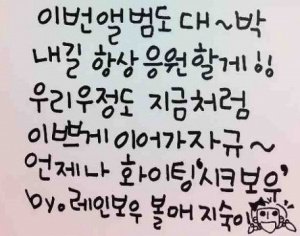 이번앨범도 대~박
내길 항상 응원할게!!
우리우정도 지금처럼
이쁘게 이어가자규~
언제나 화이팅'시크보우'
by.레인보우 볼애 지숙이